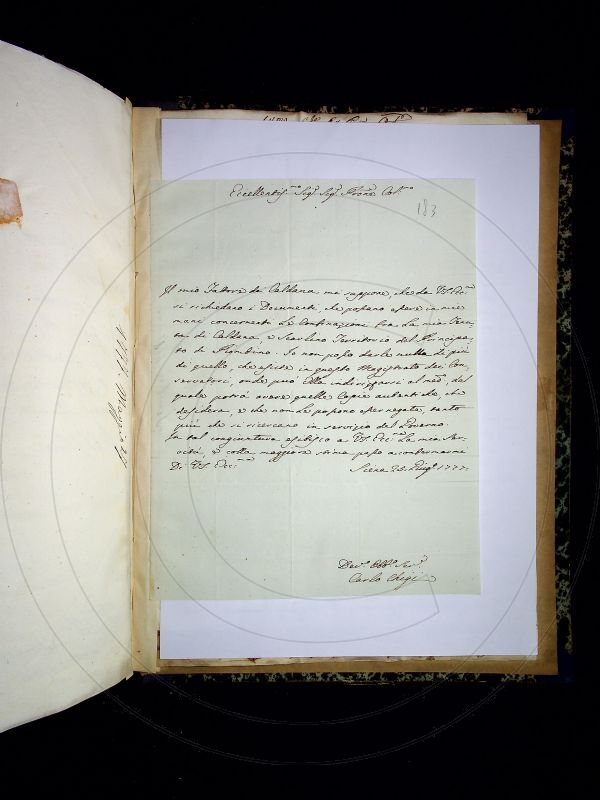 Eccellentis.mo Sig.r Sig.r Pron.e Col.mo
183
Il mio Fattore di Caldana mi suppone, che da V.S. Ecc.ma
si richiedano i Documenti, che possano essere in mie
mani concernenti Le Confinazioni fra La mia Tenu-
ta di Caldana, e Scarlino Territorio del Principa-
to di Piombino. Io non posso darle nulla di più
di quello, che esiste in questo Magistrato dei Con-
servatori, onde può Ella indirizzarsi al med.o, dal
quale potrà avere quelle Copie autentiche, che
desidera, e che non Le possono esser negate, tanto
più che si ricercano in servizio del Governo
In tal congiuntura esibisco a V.S. Ecc.ma La mia Ser-
vitù, e colla maggiore stima passo a confermarmi
Di V.S. Ecc.ma
Siena 1777.
Dev.o Obb.o Ser.e
Carlo Chigi